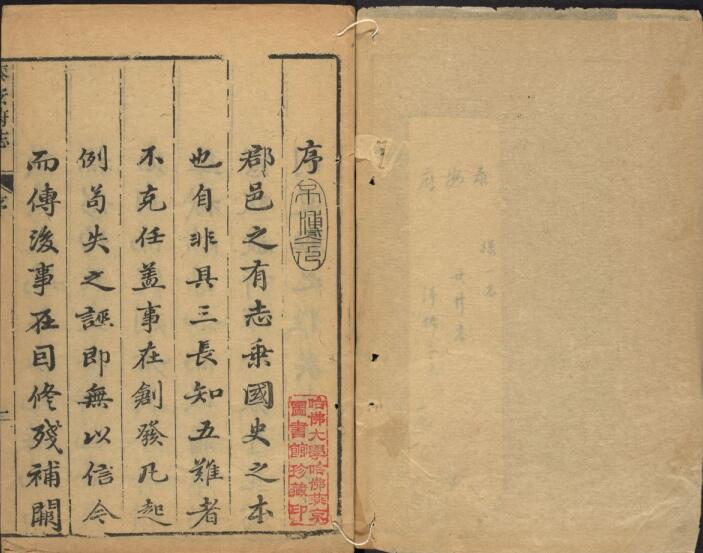 序
郡邑之有志乘國史之本
也自非具三長知五難者
不克任蓋事在創發凡起
例苟失之誣即無以信今
而傳後事在因修殘補闕
哈佛大學哈佛燕京
圖書館珍藏印
泰安府志
序